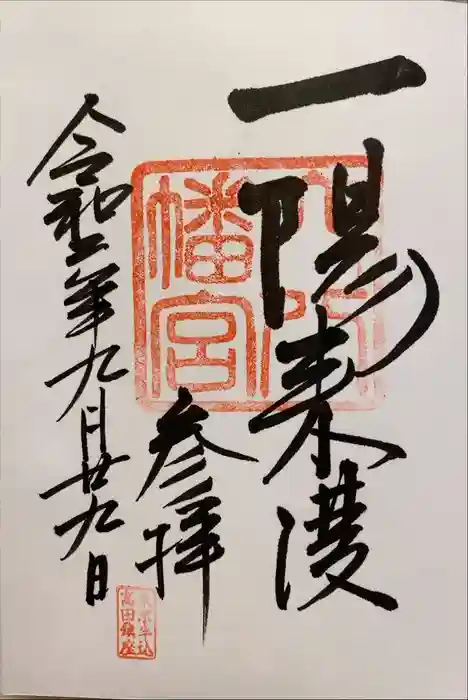 一陽来復
幡宮
参拝
令和二年九月廿九日
東京牛込
高田鎮座